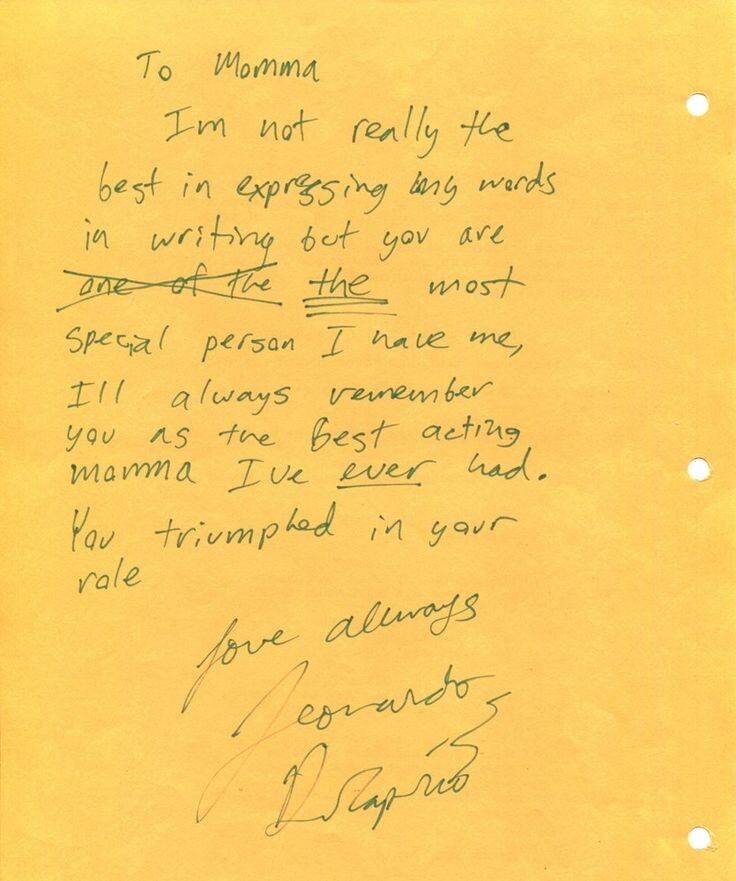 To Momma
Im not really the
best in expressing my words
in writing but you are
one of the the most
special person I have me,
I'll always remember
you as the best acting
momma I've ever had.
You triumphed in your
role
Love always
Leonardo
DiCaprio